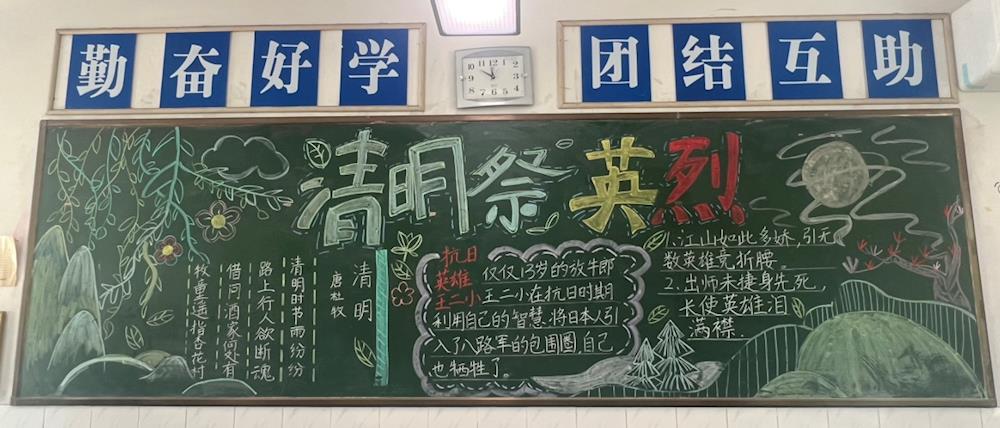 勤奋好学
团结互助
清明祭英烈
清明
唐杜牧
清明时节雨纷纷
路上行人欲断魂
借问酒家何处有
牧童遥指杏花村
抗日
英雄
王二小
仅仅13岁的放牛郎
王二小在抗日时期
利用自己的智慧,将日本人引
入了八路军的包围圈,自己
也牺牲了。
1.江山如此多娇,引无
数英雄竞折腰。
2.出师未捷身先死,
长使英雄泪
满襟.